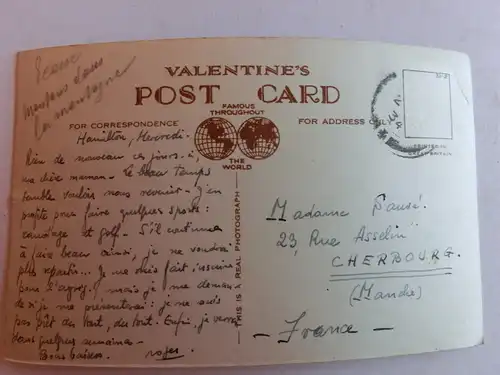 Ecosse
Maisons dans
la montagne
VALENTINE'S
POST CARD
FAMOUS
THROUGHOUT
THE WORLD
FOR CORRESPONDENCE
FOR ADDRESS ONLY
PRINTED IN
GREAT BRITAIN
THIS IS A REAL PHOTOGRAPH
Hamilton, Mercredi.
Rien de nouveau ces jours-ci,
ma chère maman. Le beau temps
semble vouloir nous revenir. J'en
profite pour faire quelques sports:
canotage et golf. S'il continue
à faire beau ainsi, je ne voudrai
plus repartir... Je me suis fait inscrire
pour l'agreg. mais je me deman-
de si je me présenterai: je ne suis
pas prêt du tout, du tout. Enfin, je verrai
dans quelques semaines.
Bons baisers. roger.
Madame
23, Rue Asselin
CHERBOURG.
(Manche)
- France -